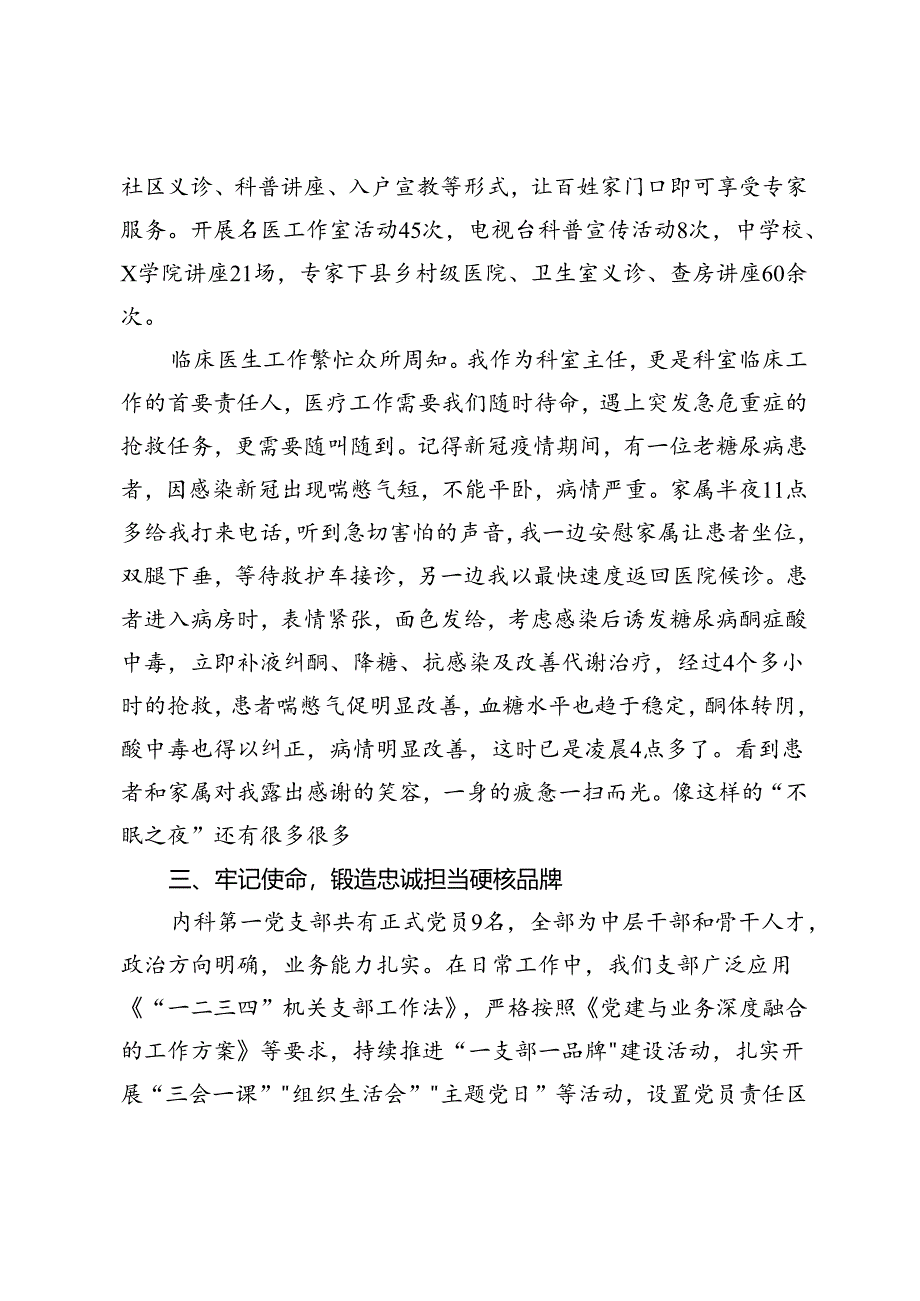 社区义诊、科普讲座、入户宣教等形式，让百姓家门口即可享受专家
服务。开展名医工作室活动45次，电视台科普宣传活动8次，中学校、
X学院讲座21场，专家下县乡村级医院、卫生室义诊、查房讲座60余
次。
临床医生工作繁忙众所周知。我作为科室主任，更是科室临床工
作的首要责任人，医疗工作需要我们随时待命，遇上突发急危重症的
抢救任务，更需要随叫随到。记得新冠疫情期间，有一位老糖尿病患
者，因感染新冠出现喘憋气短，不能平卧，病情严重。家属半夜11点
多给我打来电话，听到急切害怕的声音，我一边安慰家属让患者坐位，
双腿下垂，等待救护车接诊，另一边我以最快速度返回医院候诊。患
者进入病房时，表情紧张，面色发给，考虑感染后诱发糖尿病酮症酸
中毒，立即补液纠酮、降糖、抗感染及改善代谢治疗，经过4个多小
时的抢救，患者喘憋气促明显改善，血糖水平也趋于稳定，酮体转阴，
酸中毒也得以纠正，病情明显改善，这时已是凌晨4点多了。看到患
者和家属对我露出感谢的笑容，一身的疲惫一扫而光。像这样的“不
眠之夜”还有很多很多
三、牢记使命，锻造忠诚担当硬核品牌
内科第一党支部共有正式党员9名，全部为中层干部和骨干人才，
政治方向明确，业务能力扎实。在日常工作中，我们支部广泛应用
《“一二三四”机关支部工作法》，严格按照《党建与业务深度融合
的工作方案》等要求，持续推进“一支部一品牌"建设活动，扎实开
展“三会一课”"组织生活会”"主题党日”等活动，设置党员责任区